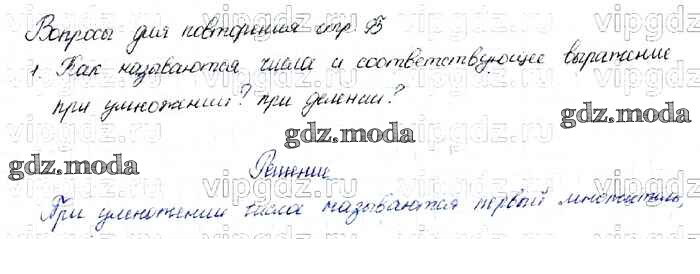 Вопросы для повторения стр. 95
1. Как называются числа и соответствующее выражение
при умножении? при делении?
gdz.moda
gdz.moda
gdz.moda
Решение
При умножении числа называются первый множитель,